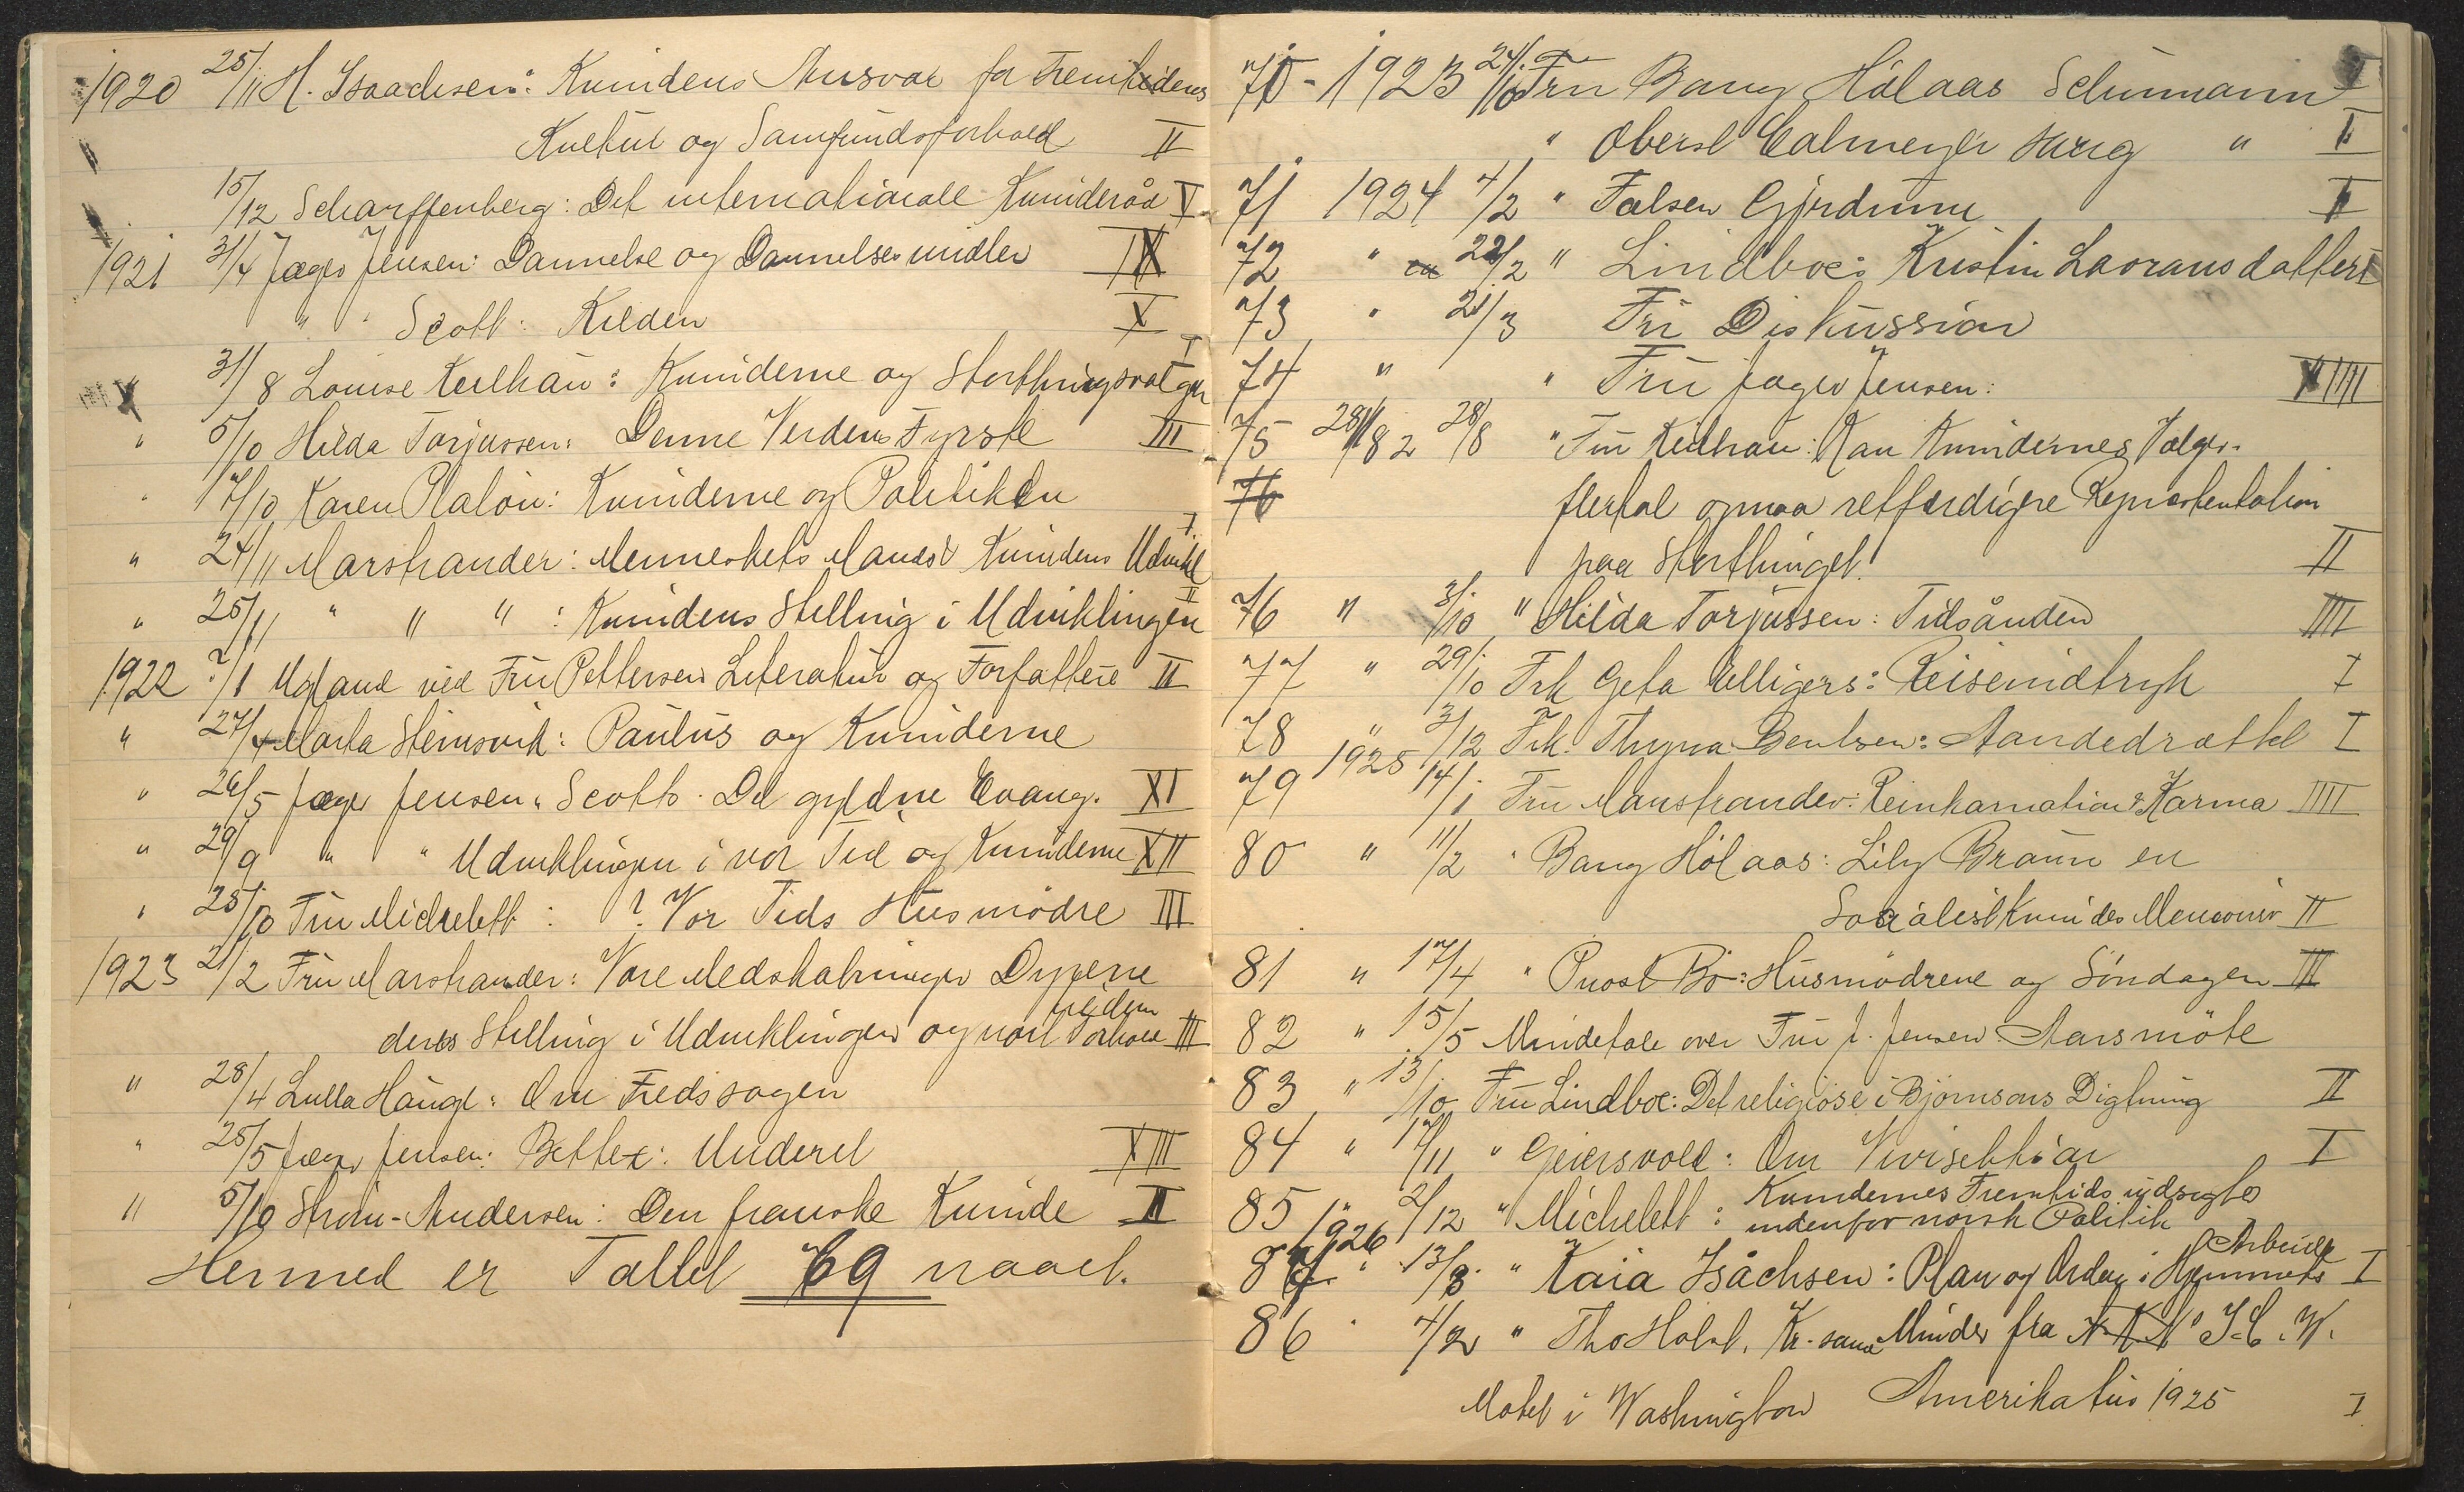 1920 25/11 H. Isaachsen: Kvindens Ansvar for Fremtidens
Kultur og Samfundsforhold II
15/12 Scharffenberg: Det internationale Kvinderåd V
1921 3/4 Jæger Jensen: Dannelse og Dannelsesmidler IX
" " Scott: Kilden X
31/8 Louise Keilhau: Kvinderne og Storthingsvalget I
" 5/10 Hilda Torjussen: Denne Verdens Fyrste III
" 17/10 Karen Platou: Kvinderne og Politiken I
" 24/11 Marstrander: Menneskets Mands & Kvindens Udvikl
" 25/11 " " " : Kvindens Stilling i Udviklingen II
1922 ?/1 Ugland ved Fru Pettersen Literatur og Forfattere II
" 27/4 Marta Steinsvik: Paulus og Kvinderne
" 26/5 Jæger Jensen: Scotts. Det gyldne Evang. XI
" 29/9 " " Udviklingen i vor Tid og Kvinderne XII
" 25/10 Fru Michelett : ? Vor Tids Husmödre III
1923 21/2 Fru Marstrander: Vore Medskabninger Dyrene
deres Stilling i Udviklingen og vort Forhold til dem III
" 28/4 Lulla Hauge: Om Fredssagen
" 25/5 Jæger Jensen: Bettex: Underet XIII
" 5/10 Strøm-Andersen: Den franske Kvinde II
Hermed er Tallet 69 naaet.
70 - 1923 24/10 Fru Bang Hölaas Schumann I
" Oberst Calmeyer sang " I
71 1924 4/2 " Falsen Gjerdrum II
72 " 22/2 " Lindboe: Kristin Lavransdatter I
73 " 21/3 Fri Diskussion
74 " " Fru Jæger Jensen: XIIII
75 28/8 " Fru Keilhau: Kan Kvindernes Vælger-
76 flertal opnaa retfærdigere Repræsentation
paa Storthinget. II
76 " 3/10 " Hilda Torjussen: Tidsånden IIII
77 " 29/10 Frk Geta Elligers: Reiseindtryk I
78 " 3/12 Frk. Thyra Bentsen: Aandedrættet I
79 1925 14/1 Fru Marstrander: Reinkarnation & Karma IIII
80 " 11/2 " Bang Hölaas: Lily Braun en
Socialistkvindes Memoirer II
81 " 17/4 " Provst Bö: Husmödrene og Söndagen III
82 " 15/5 Mindetale over Fru J. Jensen Aarsmöte
83 " 13/10 Fru Lindboe: Det religiöse i Björnsons Digtning II
84 " 17/11 " Geiersvold: Om Vivisektion I
85 " 2/12 " Michelett: Kvindernes Fremtids udsigter
indenfor norsk Politik
1926
87 " 13/8 " Kaia Isåchsen: Plan og Orden i Hjemmets Arbeide I
86 " 4/2 " Tho Holst, Kr. sand Minder fra N.K.N's I.C.W.
Motet i Washington Amerikatur 1925 I